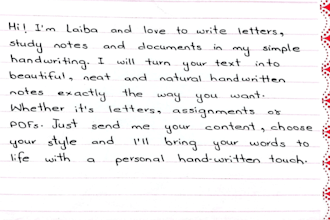 Hi! I'm Laiba and love to write letters,
study notes and documents in my simple
handwriting. I will turn your text into
beautiful, neat and natural handwritten
notes exactly the way you want.
Whether it's letters, assignments or
PDFs. Just send me your content, choose
your style and I'll bring your words to
life with a personal hand-written touch.